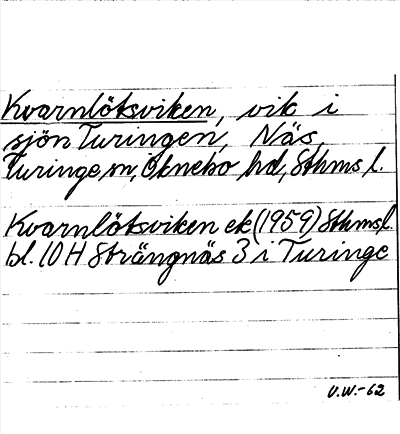 Kvarnlötsviken, vik i
sjön Turingen, Näs,
Turinge sn, Öknebo hd, Sthms l.
Kvarnlötsviken ek (1959) Sthms l.
bl. 10 H Strängnäs 3 i Turinge
U.W.-62